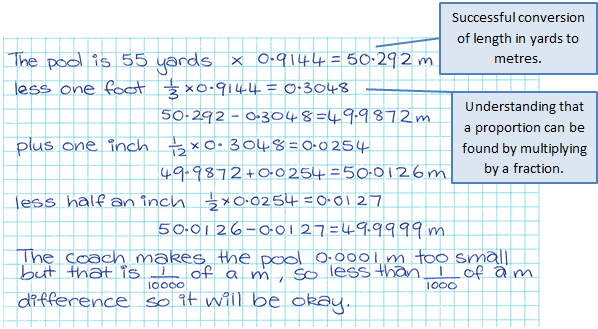 Successful conversion
of length in yards to
metres.
The pool is 55 yards × 0·9144 = 50·292 m
less one foot 1/3 × 0·9144 = 0·3048
50·292 - 0·3048 = 49·9872 m
Understanding that
a proportion can be
found by multiplying
by a fraction.
plus one inch 1/12 × 0·3048 = 0·0254
49·9872 + 0·0254 = 50·0126 m
less half an inch 1/2 × 0·0254 = 0·0127
50·0126 - 0·0127 = 49·9999 m
The coach makes the pool 0·0001 m too small
but that is 1/10000 of a m, so less than 1/1000 of a m
difference so it will be okay.